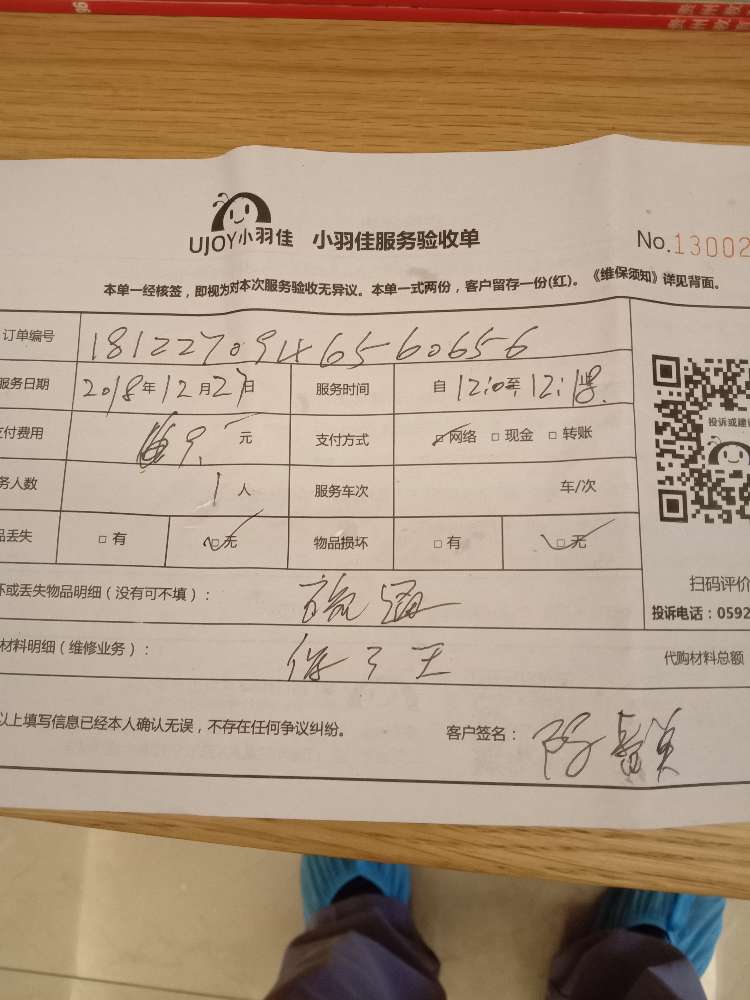 UJOY小羽佳 小羽佳服务验收单 No.13002
本单一经核签，即视为对本次服务验收无异议。本单一式两份，客户留存一份(红)。《维保须知》详见背面。
订单编号 181227094656 0656
服务日期 2018年12月27日 服务时间 自12:0至12:18止
付费用 元 支付方式 □网络 □现金 □转账
务人数 1人 服务车次 车/次
品丢失 □有 □无 物品损坏 □有 □无
投诉或建议
坏或丢失物品明细（没有可不填）：
扫码评价
投诉电话：0592
材料明细（维修业务）： 代购材料总额
以上填写信息已经本人确认无误，不存在任何争议纠纷。 客户签名：